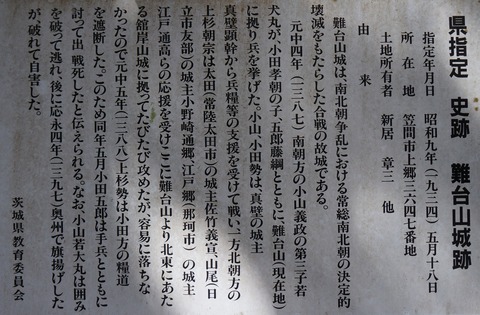 県指定 史跡 難台山城跡
指定年月日 昭和九年(一九三四)五月十八日
所在地 笠間市上郷三六四七番地
土地所有者 新居 章三 他
由来
難台山城は、南北朝争乱における常総南北朝の決定的
壊滅をもたらした合戦の故城である。
元中四年(一三八七)南朝方の小山義政の第三子若
犬丸が小田孝朝の子、五郎藤綱とともに、難台山(現在地)
に拠り兵を挙げた。小山、小田勢は、真壁の城主
真壁顕幹から兵糧等の支援を受けて戦い、一方北朝方の
上杉朝宗は太田(常陸太田市)の城主佐竹義宣、山尾(日
立市友部)の城主小野崎通郷、江戸郷(那珂市)の城主
江戸通高らの応援を受け、ここに難台山より北東にあた
る舘岸山城に拠ってたびたび攻めたが、容易に落ちな
かったので元中五年(一三八八)上杉勢は小田方の糧道
を遮断した。このため同年五月小田五郎は手兵とともに
討って出 戦死したと伝えられる。なお、小山若犬丸は囲み
を破って逃れ、後に応永四年(一三九七)奥州で旗揚げした
が破れて自害した。
茨城県教育委員会